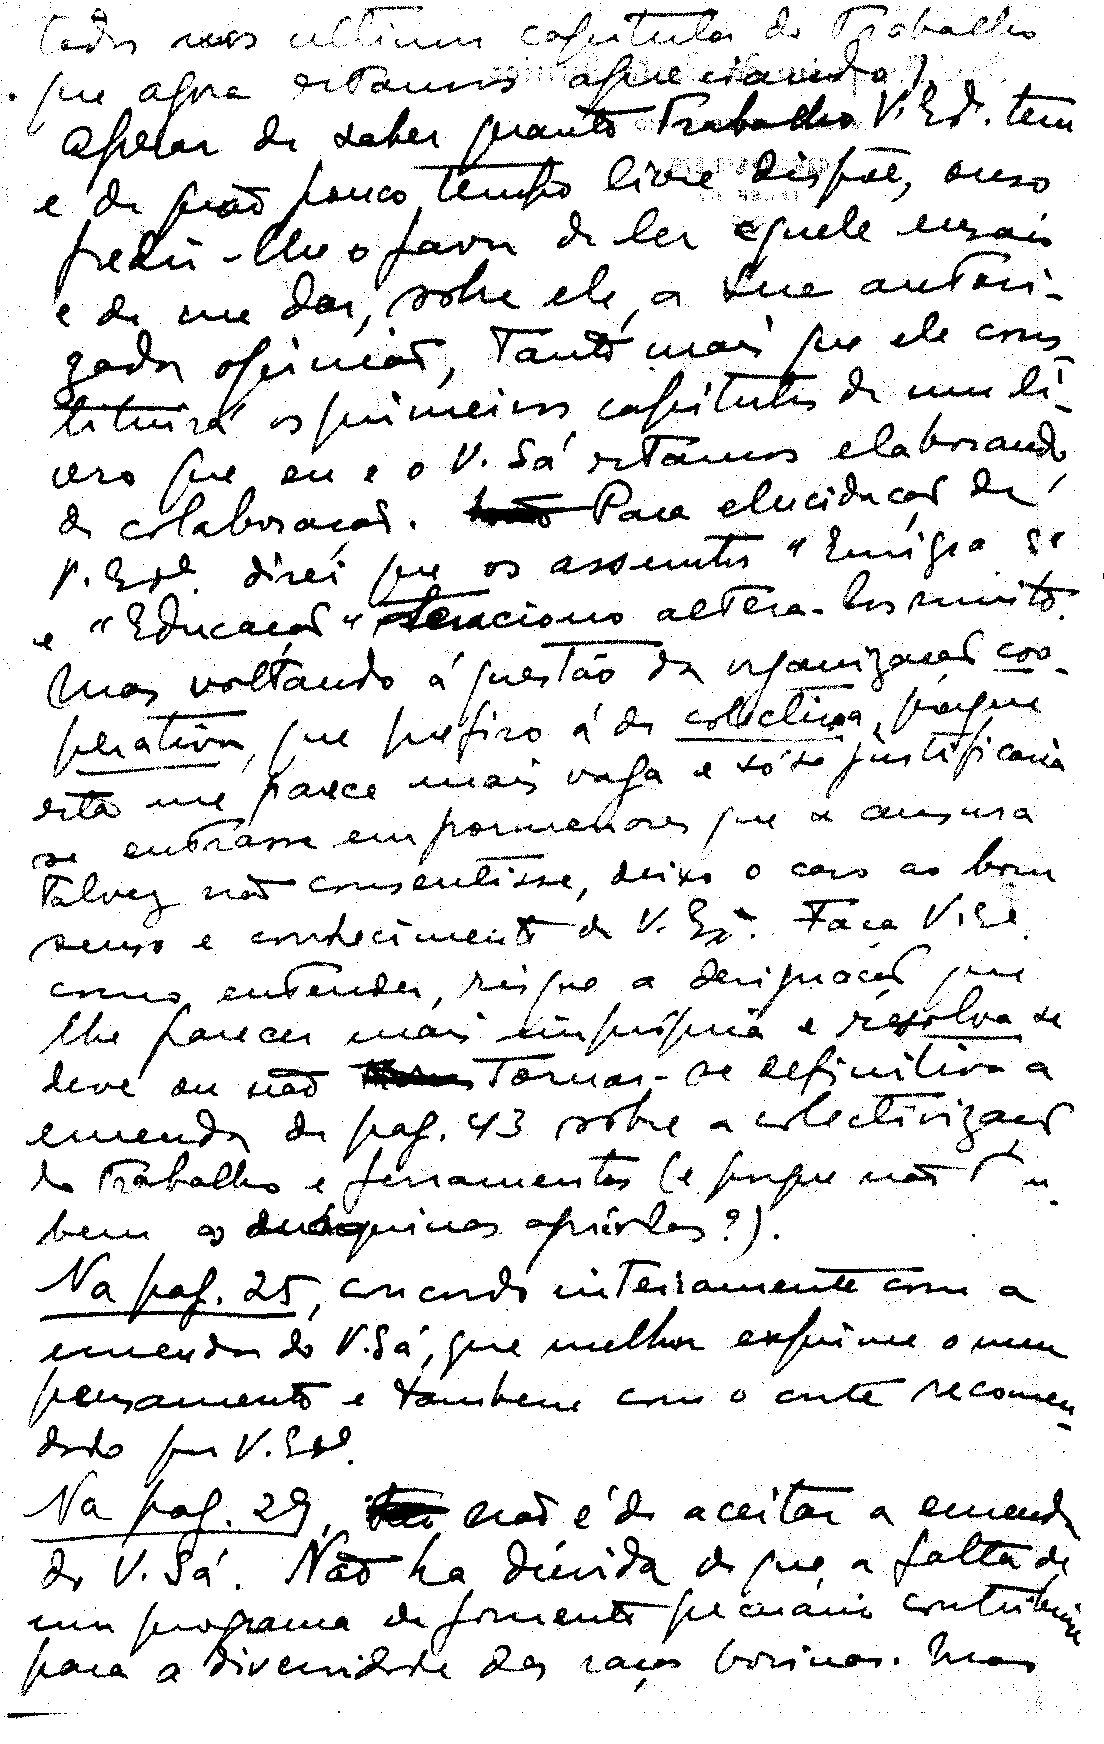 tados nos ultimos capitulos do trabalho
que agora estamos apreciando).
Apesar de saber quanto trabalho V. Exª. tem
e de quão pouco tempo livre dispõe, ouso
pedir-lhe o favor de ler aquele ensaio
e de me dar, sobre ele, a sua autori-
zada opinião, tanto mais que ele cons
tituirá os primeiros capitulos de um li-
vro que eu e o V. Sá estamos elaborando
de colaboração. Para elucidação de
V. Exª. direi que os assuntos "Emigra."
e "Educação" tenciono altera-los muito.
Mas voltando á questão da organização coo-
perativa, que prefiro á de colectiva, porque
esta me parece mais vaga e só se justificaria
se entrasse em pormenores que a censura
talvez não consentisse, deixo o caso ao bom
senso e conhecimento de V. Exª. Faça V. Ex
como entender, risque a designação que
lhe parecer mais impropria e resolva se
deve ou não tornar-se definitiva a
emenda da pag. 43 sobre a colectivização
do trabalho e ferramentas (e porque não
bem as máquinas agrícolas?).
Na pag. 25, concordo inteiramente com a
emenda do V. Sá, que melhor exprime o meu
pensamento e tambem com o corte recomen-
dado por V. Exª.
Na pag. 29, não é de aceitar a emenda
do V. Sá. Não ha dúvida de que a falta de
um programa de fomento pecuario contribuiu
para a diversidade das raças bovinas. Mas